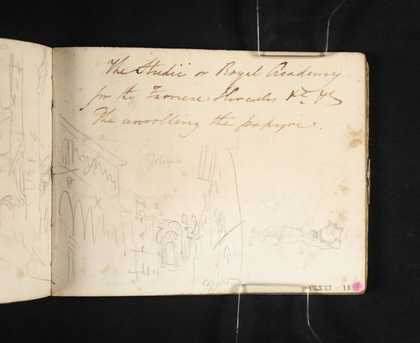 The Studii or Royal Academy
for the Farnese Hercules &c &c
The unrolling the papyri.